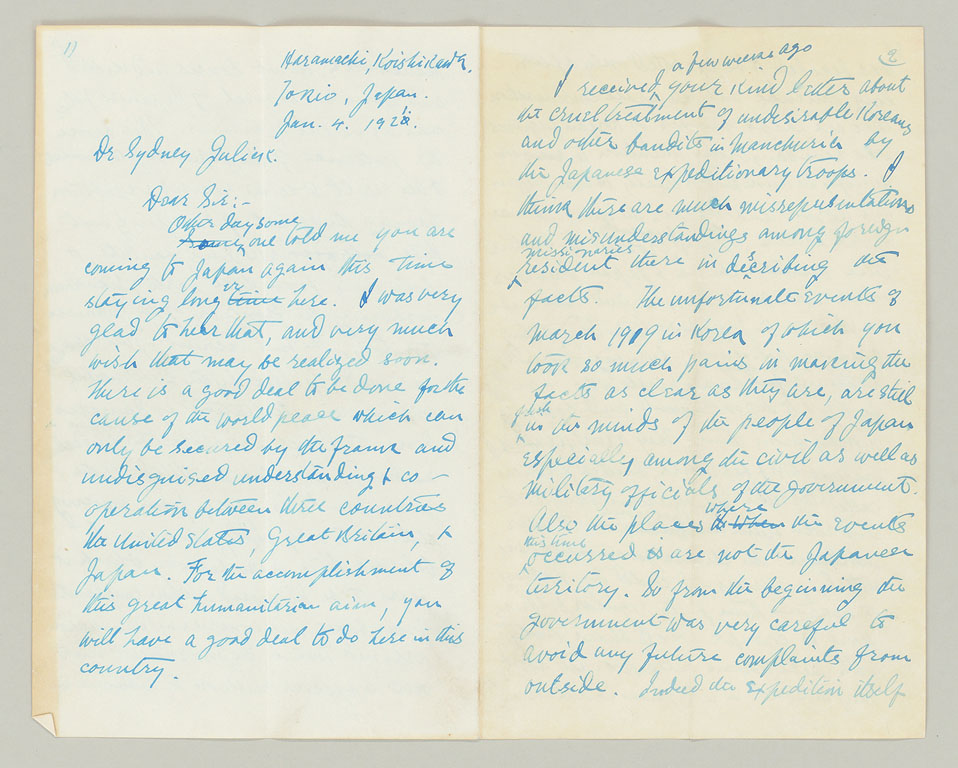 1)
Haramachi, Koishikawa.
Tokio, Japan.
Jan. 4. 192
Dr Sydney Julick.
Dear Sir:-
Other day some
one told me you are
coming to Japan again this time
staying longer time here. I was very
glad to hear that, and very much
wish that may be realized soon.
There is a good deal to be done for the
cause of the world peace which can
only be secured by the frank and
undisguised understanding & co-
operation between three countries
the United States, Great Britain, &
Japan. For the accomplishment of
this great humanitarian aim, you
will have a good deal to do here in this
country.
2
a few weeks ago
I received your kind letter about
the cruel treatment of undesirable Koreans
and other bandits in Manchuria by
the Japanese expeditionary troops. I
think there are much misrepresentations
and misunderstandings among foreign
missionaries
resident there in describing the
facts. The unfortunate events of
March 1919 in Korea of which you
took so much pains in making the
facts as clear as they are, are still
fresh
in the minds of the people of Japan
especially among the civil as well as
military officials of the government.
where
Also the places when the events
this time
occurred is are not the Japanese
territory. So from the beginning the
government was very careful to
avoid any future complaints from
outside. Indeed the expedition itself